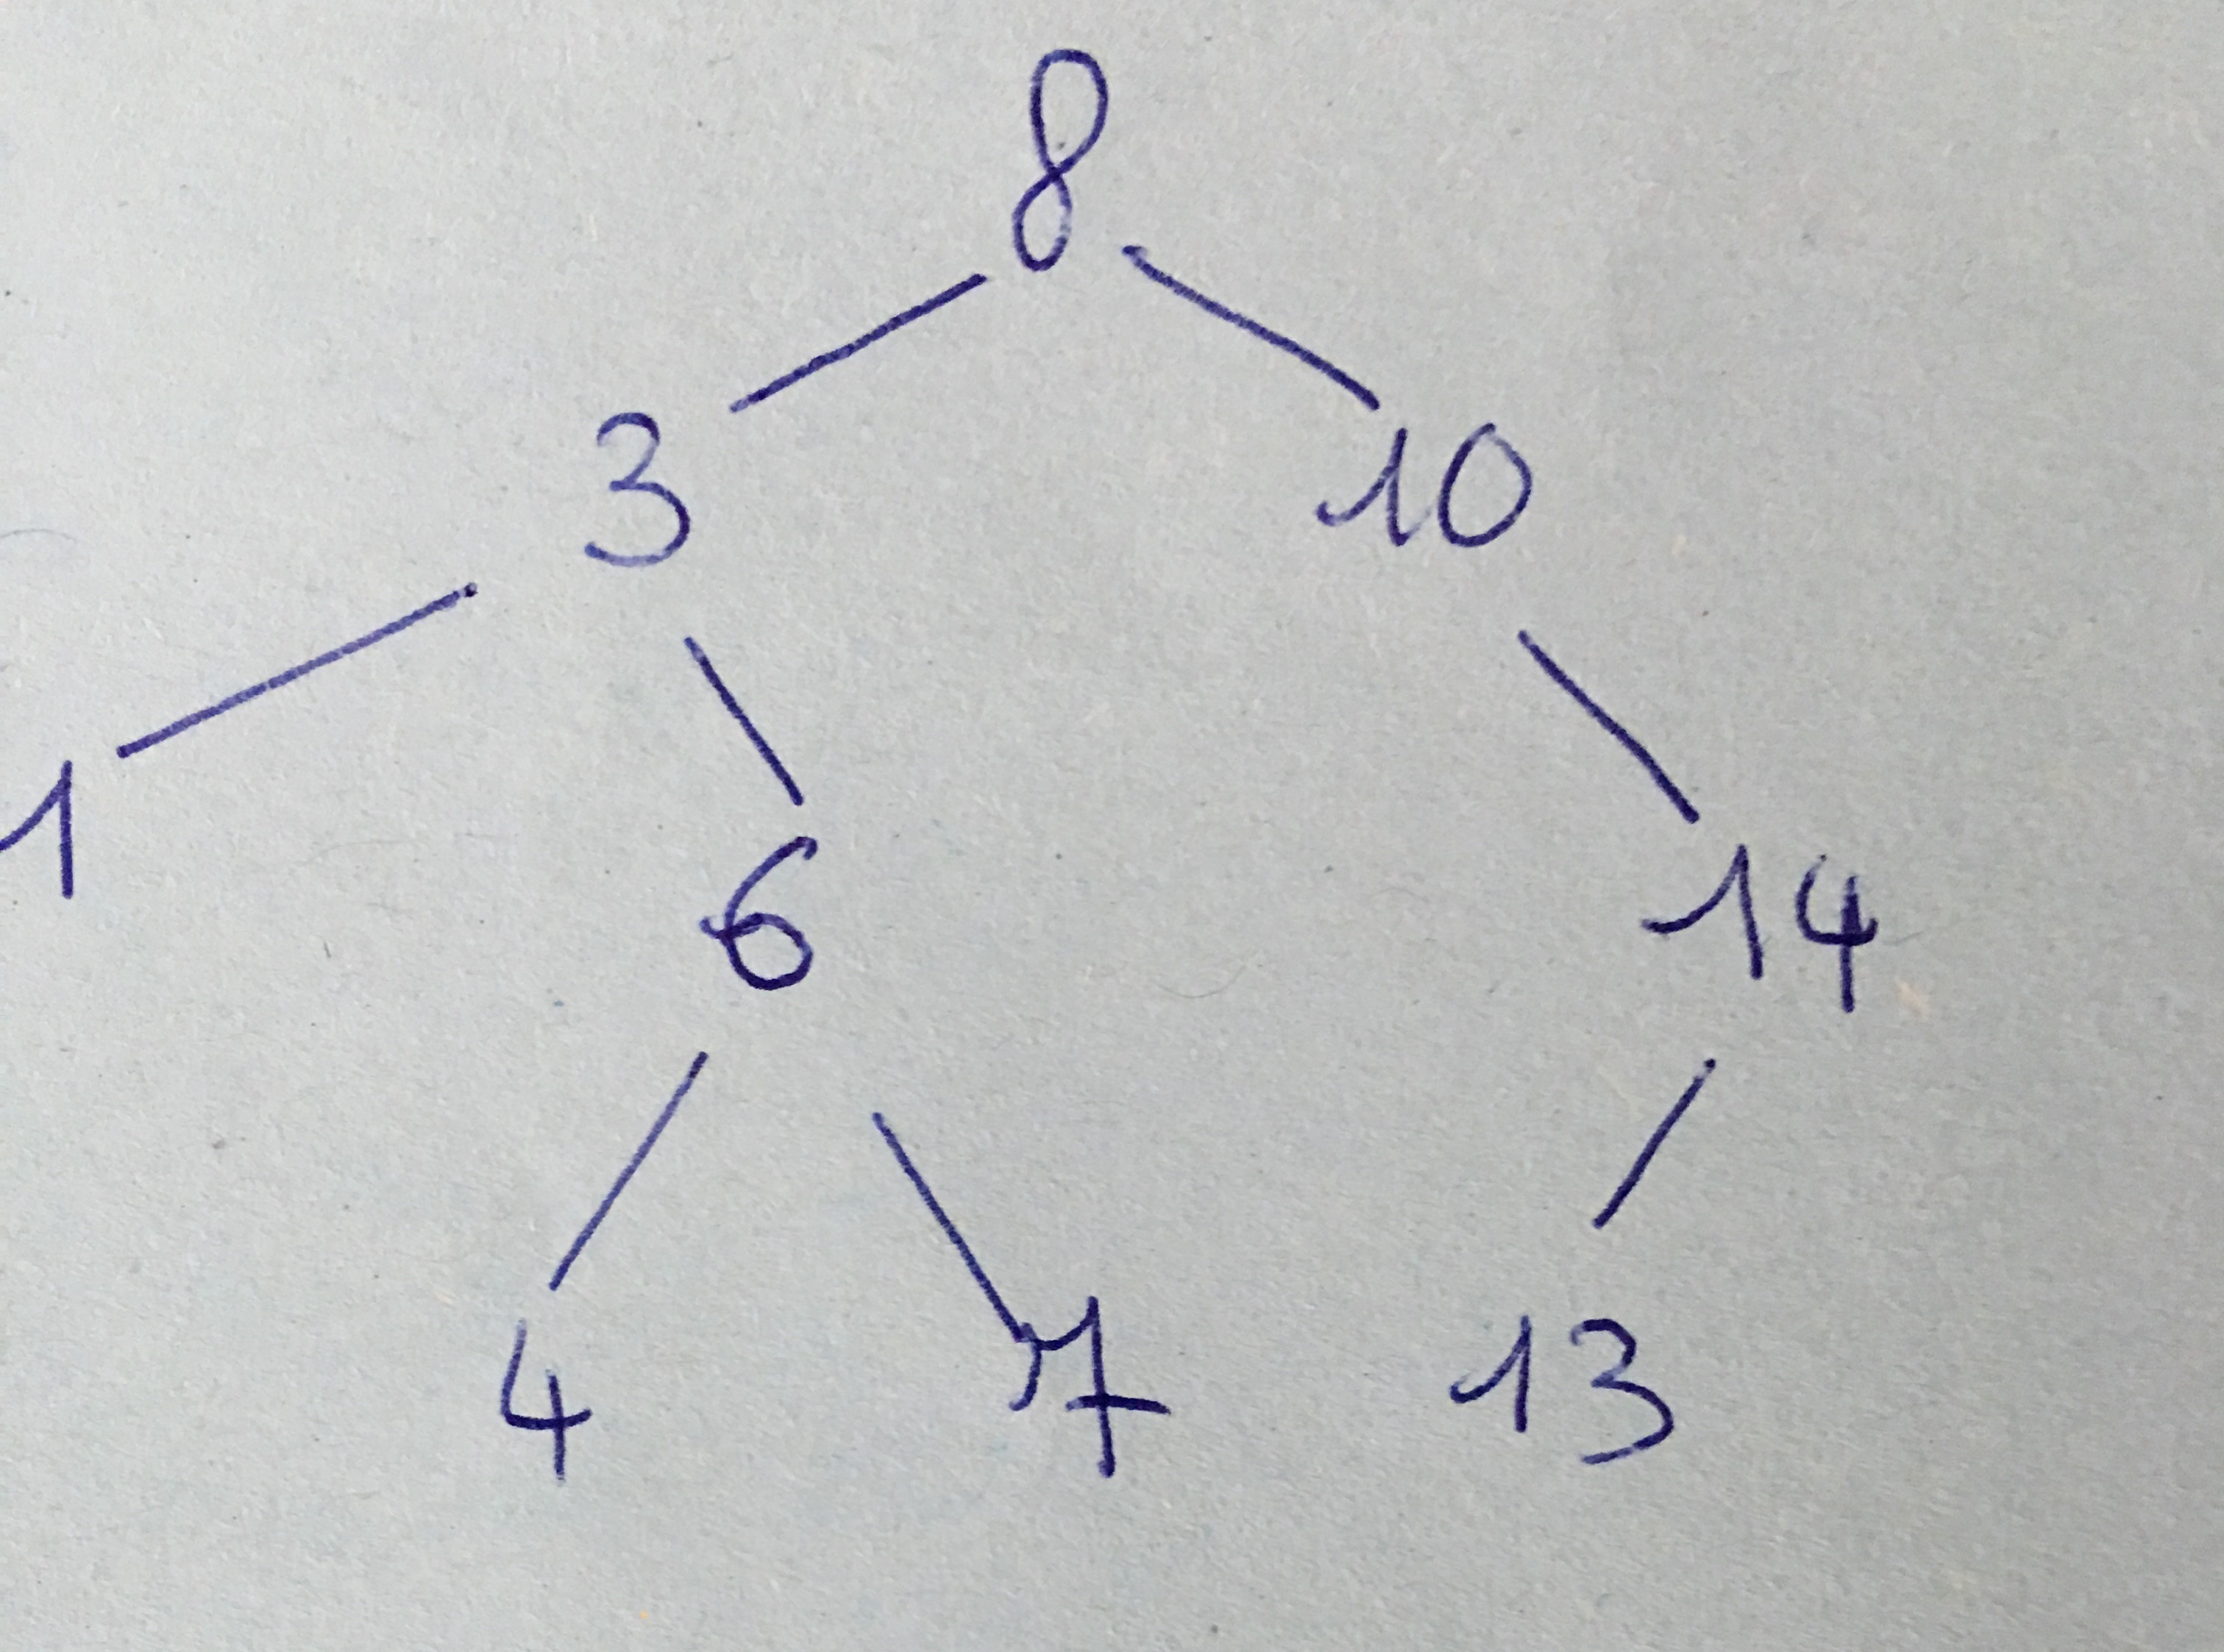 8
3 10
1 6 14
4 7 13